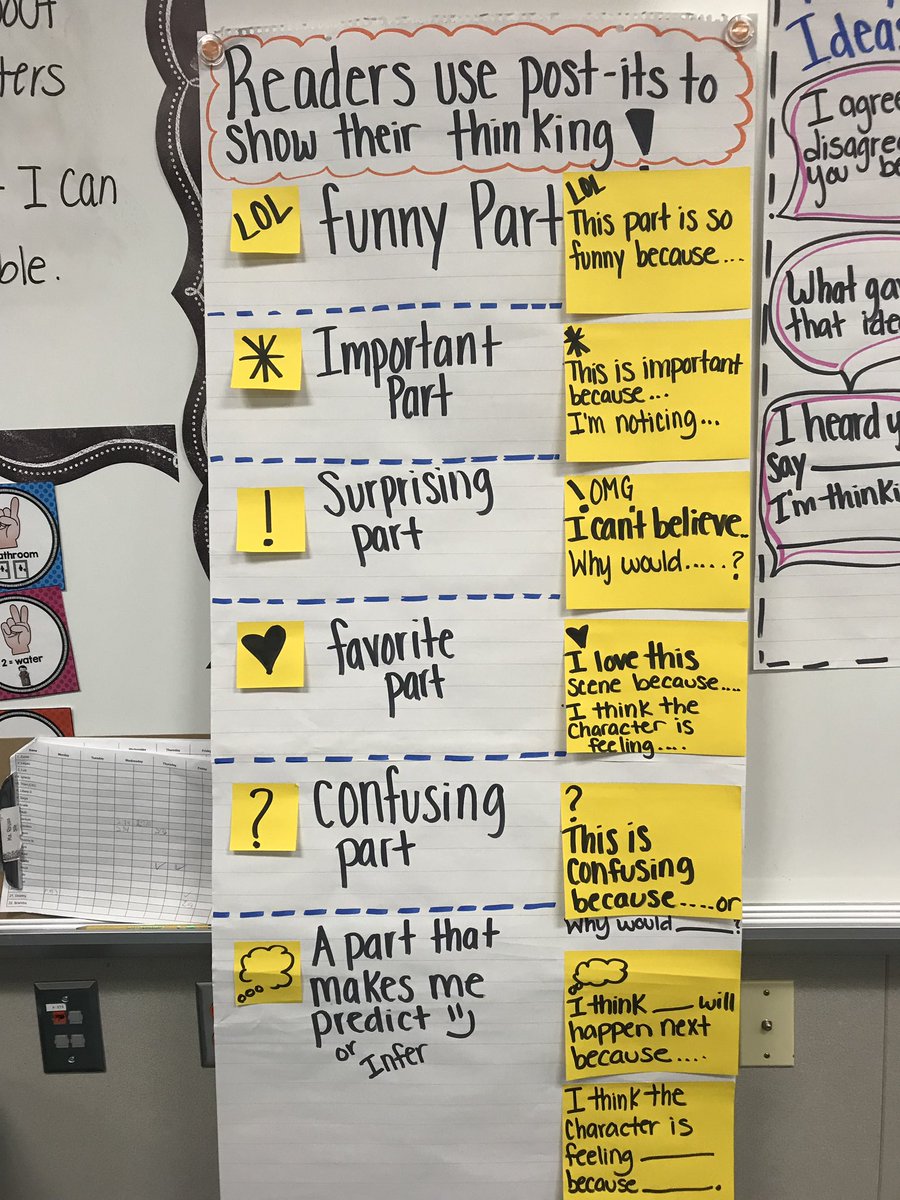 Readers use post-its to
show their thinking!
LOL
funny Part
LOL
This part is so
funny because...
*
Important
Part
*
This is important
because...
I'm noticing...
!
Surprising
part
! OMG
I can't believe..
Why would.....?
♥
favorite
part
♥
I love this
scene because....
I think the
character is
feeling....
?
Confusing
part
?
This is
confusing
because....or
Why would ___?
A part that
makes me
predict
or
Infer
I think ___ will
happen next
because....
I think the
character is
feeling ___
because ___.
I can
Ideas
I agree
you
What
that
I heard
say ___
I'm
2 = water
Monday
Tuesday
Wednesday
Thursday
Friday